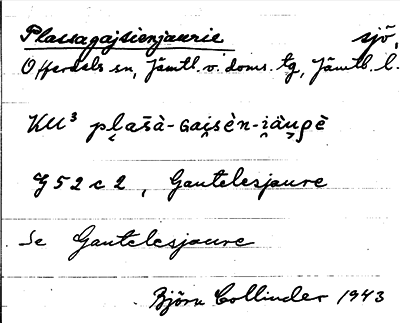 Plassagajsienjaurie sjö,
Offerdals sn, Jämtl. v. doms. tg, Jämtl. l.
KU³ pl̥as̄à-Gai̯sèn-i̯äu̯rē
G 5 2 c 2, Gautelesjaure
Se Gautelesjaure
Björn Collinder 1943